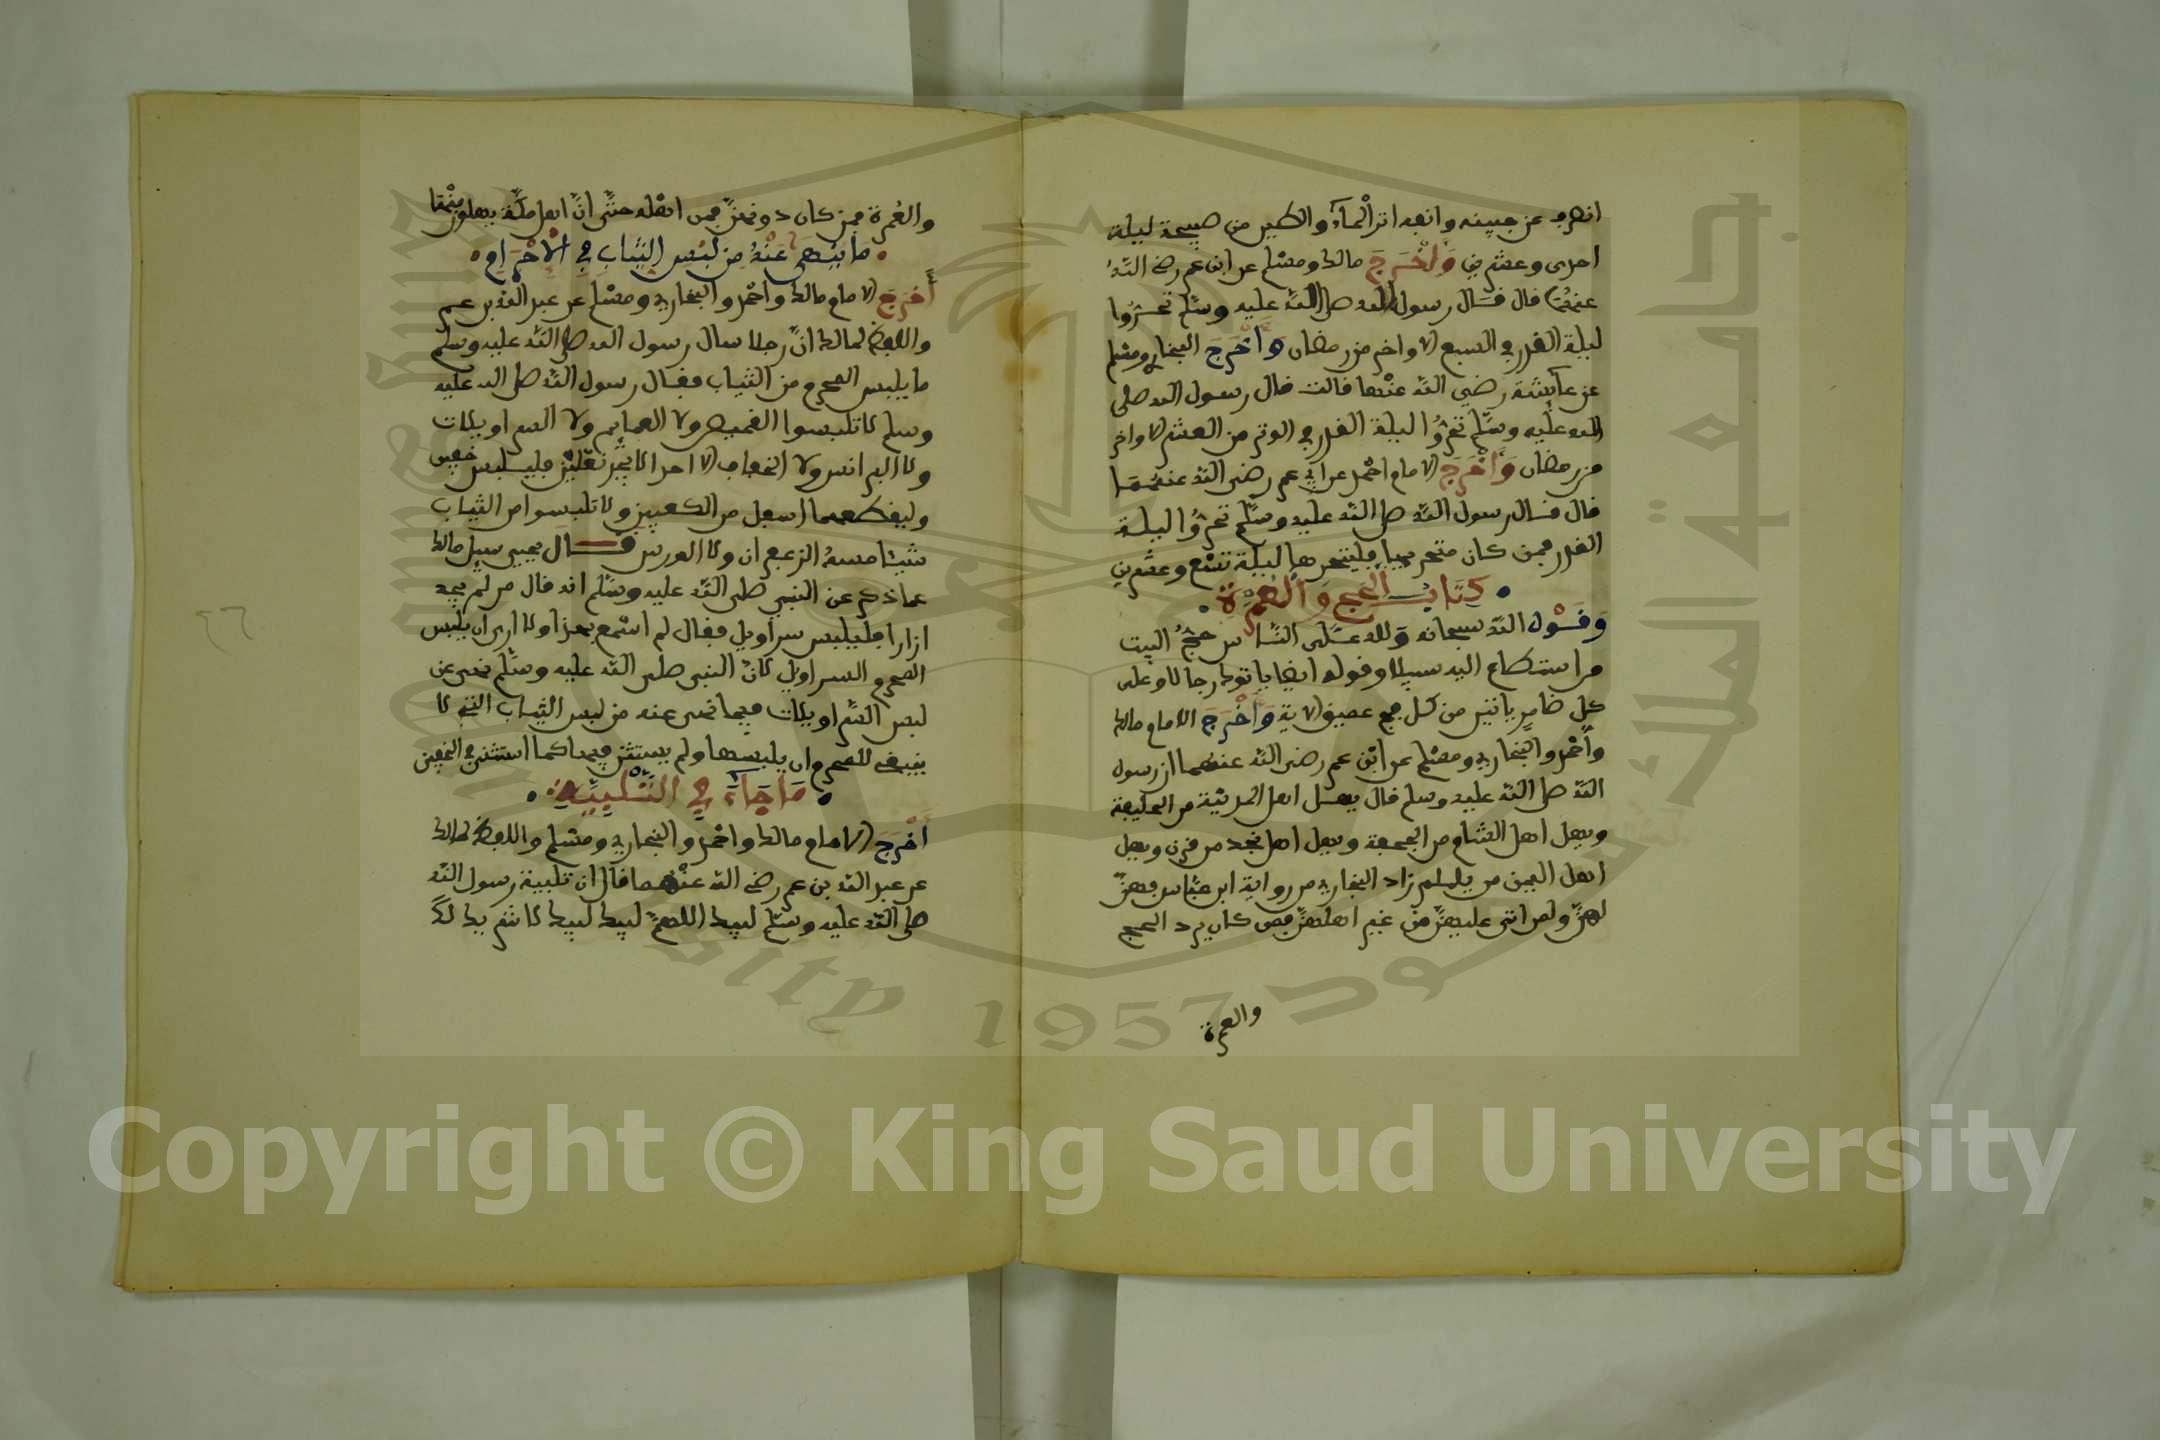 انصرف عن جبينه وانفه اثر المآء والطين من صبيحة ليلة
احدى وعشرين وَأَخْرَجَ مالك ومسلم عن ابن عمر رضي الله
عنهُما قال قال رسول الله صلى الله عليه وسلم تحرّوا
ليلة القدر في السبع الاواخر من رمضان وَأَخْرَجَ البخاري ومسلم
عن عآيشة رضي الله عنها قالت قال رسول الله صلى
الله عليه وسلم تحرّوا ليلة القدر في الوتر من العشر الاواخر
من رمضان وَأَخْرَجَ الامام احمد عن ابن عمر رضى الله عنهمَا
قال قال رسول الله صلى الله عليه وسلم تحرّوا ليلة
القدر فمن كان متحريها فليتحرها ليلة تسْع وعشرين
كِتَابُ الْحَجِ وَالْعُمْرَة
وَقَوْله الله سبحانه وَلله على النَّاس حجُّ البيت
من استطاع اليه سبيلا وقوله ايضا ياتوك رجالا وعلى
كل ضامرٍ ياتين من كل فج عميق الاية وَأَخْرَجَ الامام مالك
وأحْمد والبخاري ومسلم عن ابْن عمر رضى الله عنهما ان رسول
الله صلى الله عليه وسلم قال يهل اهل المدينة من الحليفة
ويهل اهل الشام من الجحفة ويهل اهل نجد من قرن ويهل
اهل اليمن من يلملم زاد البخاري من رواية ابن عبّاس فهنّ
لهنّ ولمن اتى عليهنّ من غير اهلهنّ فمن كان يريد الحج
والعمرة
والعُمرة فمن كان دونهنّ فمن اهله حتّى انّ اهل ملّة يهلون منْها
مَا يُنْهَى عَنْهُ مِن لُبْس الثِيَابِ فِي الْاحْرَامِ
أَخْرَجَ الامام مالك واحْمد والبخاري ومسْلم عن عبد الله بن عمر
واللفظ لمالك انّ رجلا سال رسول الله صلى الله عليه وسلم
ما يلبس المحرم من الثياب فقال رسول الله صلى الله عليه
وسلم لا تلبسوا القميص ولا العمايم ولا السراويلات
ولا البرانس ولا الخفاف الا احد لا يجد نعْليْن فليلبس خفين
وليقطعهما اسفل من الكعبين ولا تلبسوا من الثياب
شيئا مسهُ الزعفران ولا الورس قَال يحيى سيل مالك
عما ذكر عن النبي صلى الله عليه وسلم انه قال من لم يجد
ازارا فليلبس سراويل فقال لم اسْمع بهذا ولا ارى ان يلبس
المحرم السراويل لانّ النبي صلى الله عليه وسلم نهى عن
لبس السّراويلات فيما نهى عنه من لبس الثياب التي لا
ينبغي للمحرم ان يلبسها ولم يستثن فيها كما استثنى في الخفين
مَا جَآءَ فِي التَّلْبِيَّةِ
أَخْرَجَ الامام مالك واحْمد والبخاري ومسْلم واللفظ لمالك
عن عبد الله بن عمر رضي الله عنْهما قال ان تلبية رسول الله
صلى الله عليه وسلم لبيك اللهمّ لبيك لبيك لا شريك لك
٢٦
Copyright © King Saud University
1957